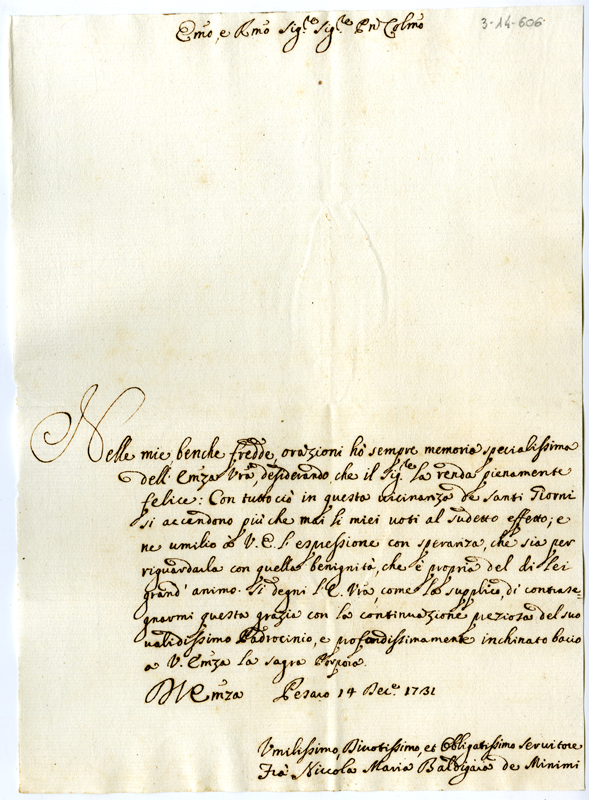 Emo, e Rmo Sig.re Sig.re Pñ Colmo
3-14-606.
Nelle mie, benche fredde, orazioni hò sempre memoria specialissima
dell' Emza Vrã desiderando, che il Sig.re la renda pienamente
felice: Con tuttociò in questa vicinanza de Santi Giorni
si accendono più che mai li miei voti al sudetto effetto; e
ne umilio à V. E. l'espressione con speranza, che sia per
riguardarla con quella benignità, che è propria del di lei
grand' animo. Si degni l'E. Vrã, come la supplico, di contrase=
gnarmi questa grazia con la continuazione preziosa del suo
validissimo Padrocinio, e profondissimamente inchinato bacio
a V. Emza la sagra Porpora.
Emza Pesaro 14 Dec.e 1731
Vmilissimo, Divotissimo, et Obligatissimo Servitore
Frà Niccola Maria de Minimi